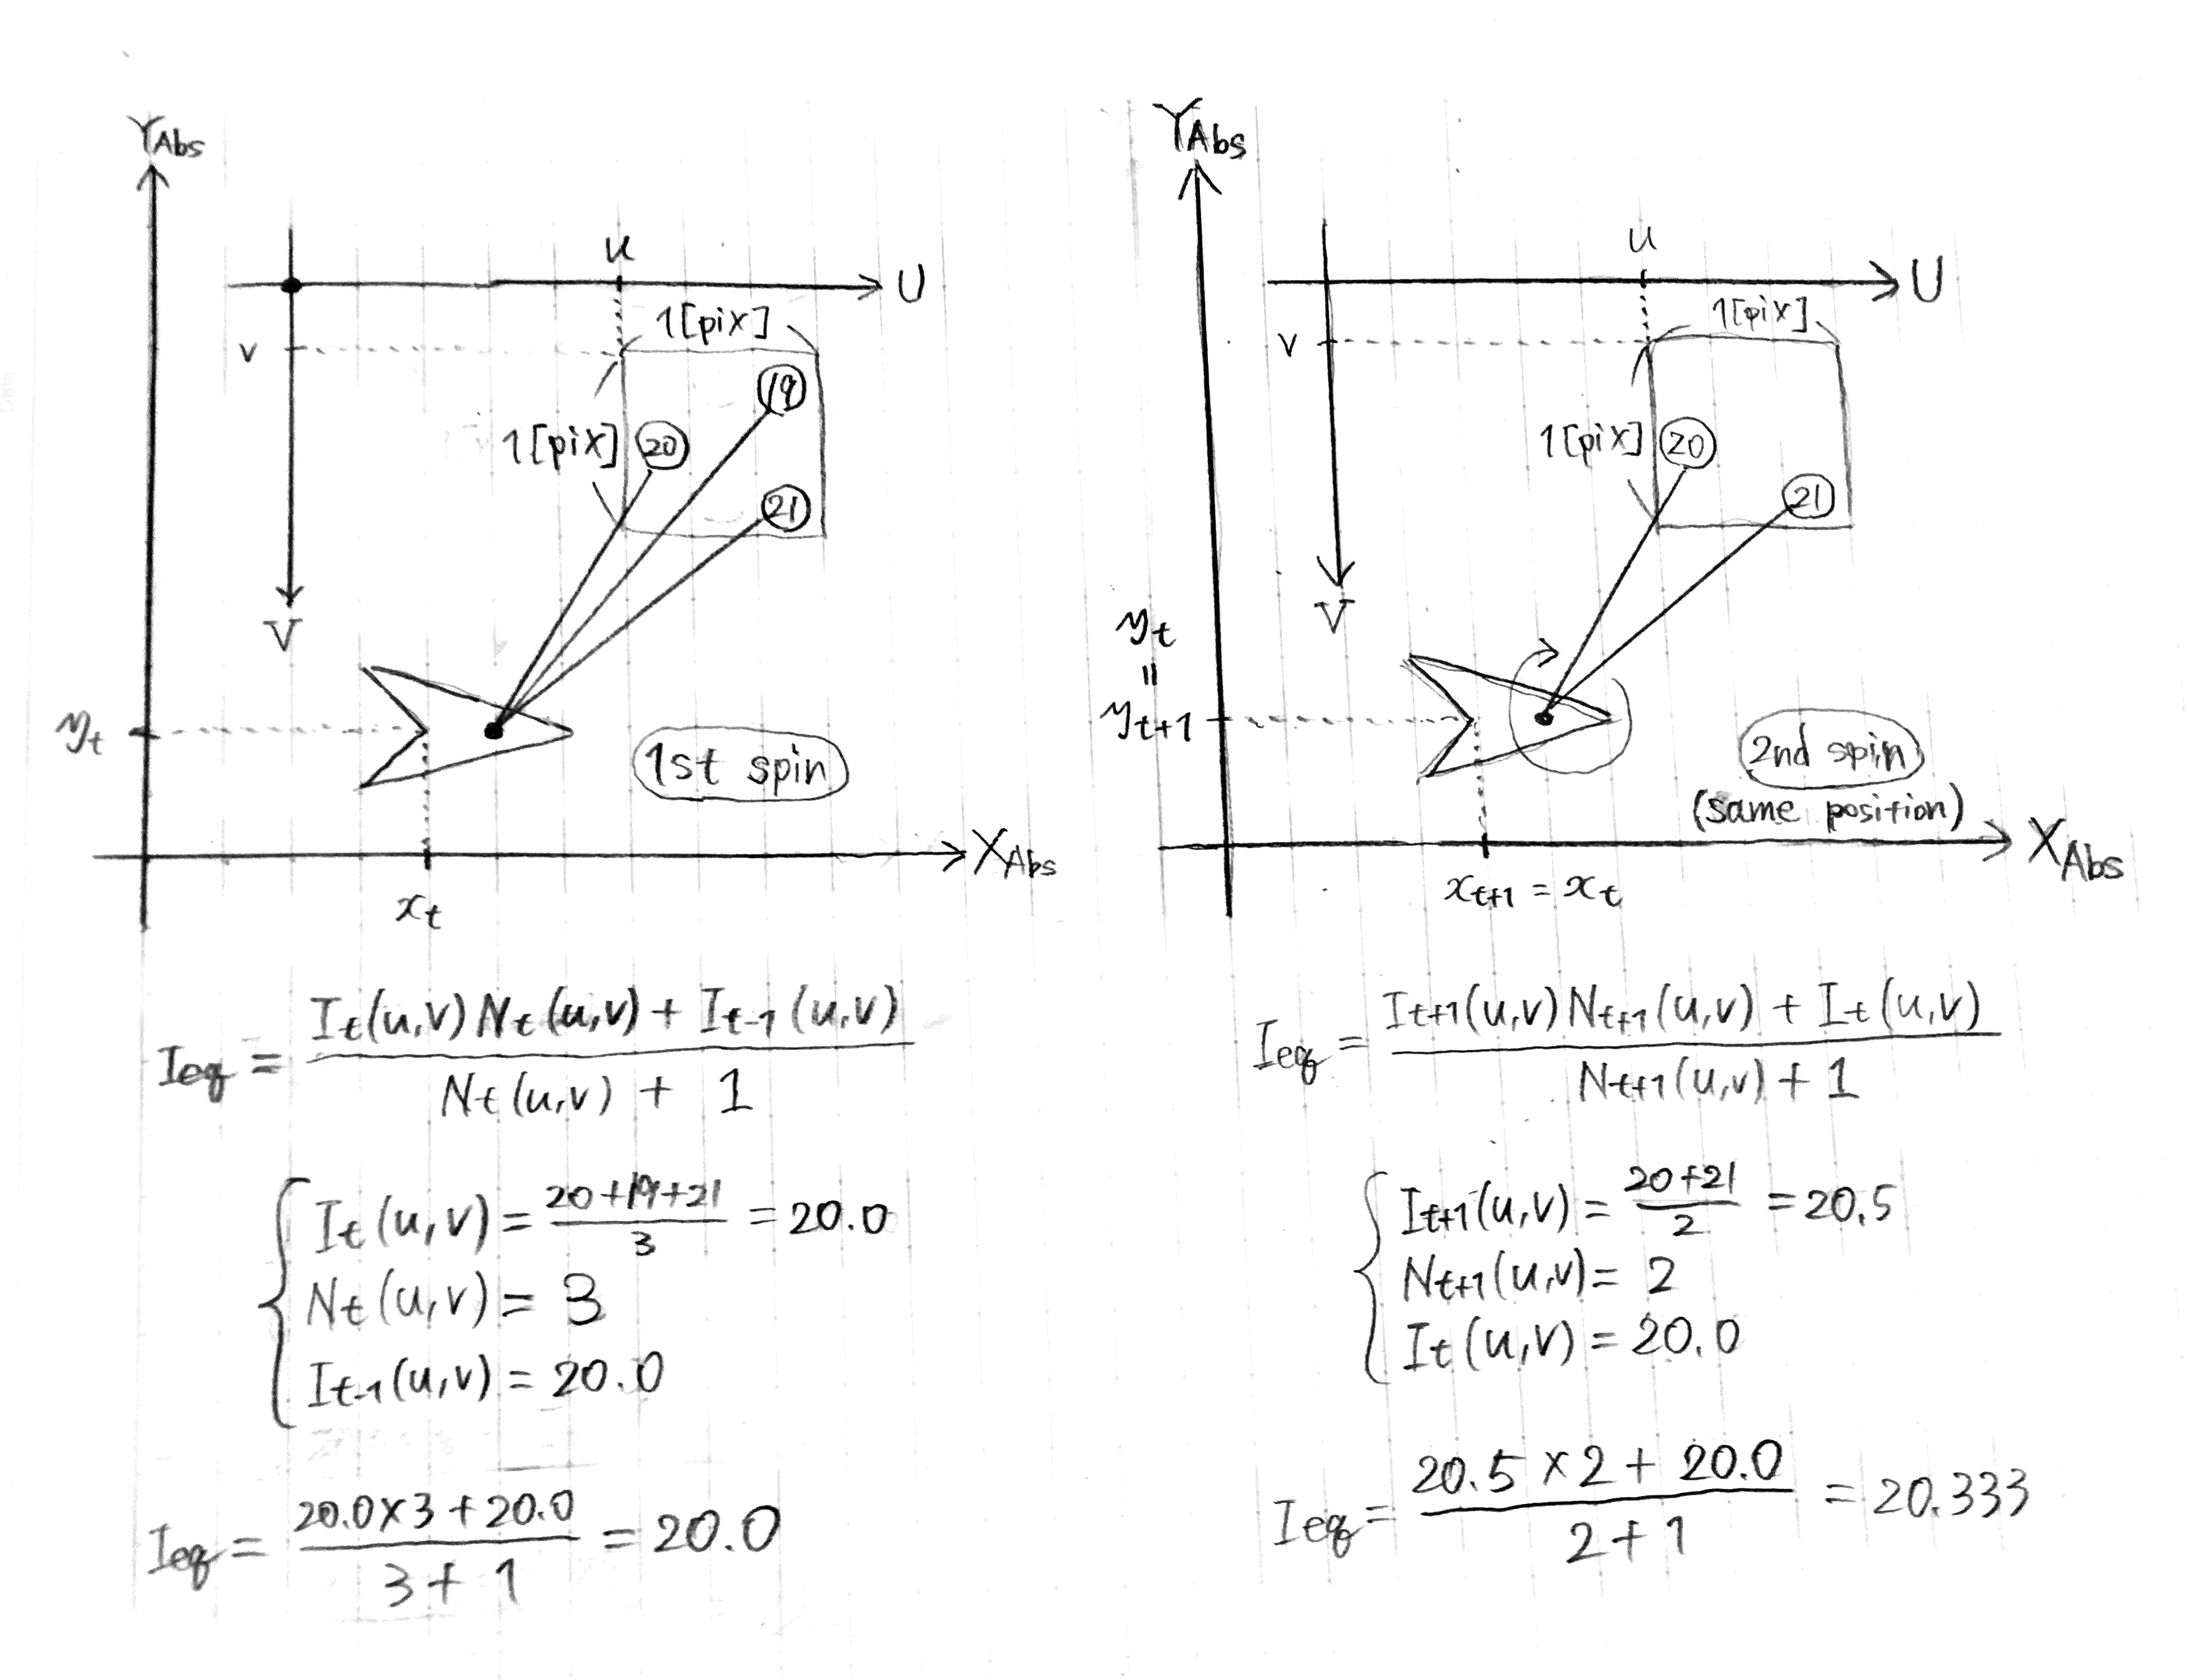 Y_Abs
u
U
1[pix]
v
19
1[pix]
20
21
V
y_t
1st spin
X_Abs
x_t
I_eq = (I_t(u,v) N_t(u,v) + I_t-1(u,v)) / (N_t(u,v) + 1)
I_t(u,v) = (20+19+21) / 3 = 20.0
N_t(u,v) = 3
I_t-1(u,v) = 20.0
I_eq = (20.0×3 + 20.0) / (3 + 1) = 20.0
Y_Abs
u
U
1[pix]
v
1[pix]
20
21
V
y_t
=
y_t+1
2nd spin
(same position)
X_Abs
x_t+1 = x_t
I_eq = (I_t+1(u,v) N_t+1(u,v) + I_t(u,v)) / (N_t+1(u,v) + 1)
I_t+1(u,v) = (20+21) / 2 = 20.5
N_t+1(u,v) = 2
I_t(u,v) = 20.0
I_eq = (20.5 × 2 + 20.0) / (2 + 1) = 20.333